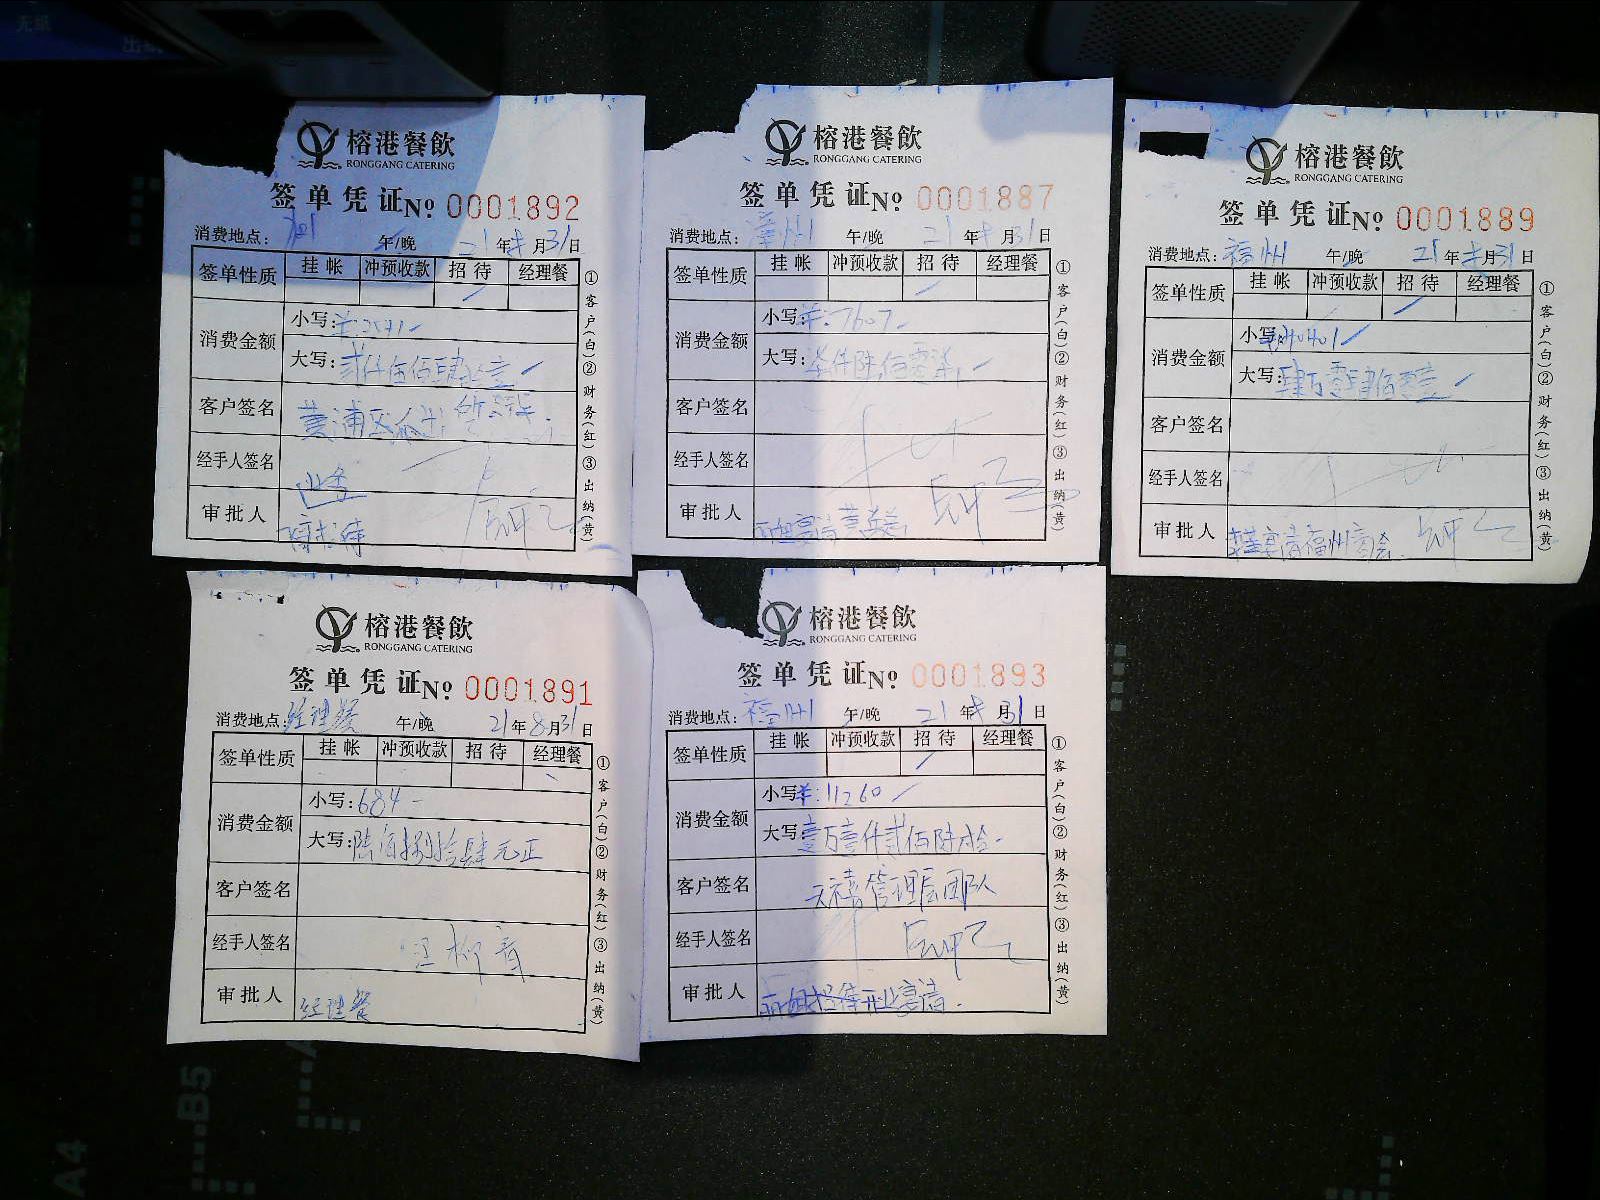 无纸
榕港餐飲
RONGGANG CATERING
签单凭证№ 0001892
消费地点: 午/晚 21年 月31日
签单性质 挂帐 冲预收款 招待 经理餐
消费金额
小写: ¥:2541
大写: 贰仟伍佰肆拾壹
客户签名 黄浦区
经手人签名
审批人
①客户(白)②财务(红)③出纳(黄)
榕港餐飲
RONGGANG CATERING
签单凭证№ 0001887
消费地点: 漳州 午/晚 21年 月31日
签单性质 挂帐 冲预收款 招待 经理餐
消费金额
小写: ¥:7607
大写: 柒仟陆佰零柒
客户签名
经手人签名
审批人 宴请
①客户(白)②财务(红)③出纳(黄)
榕港餐飲
RONGGANG CATERING
签单凭证№ 0001889
消费地点: 福州 午/晚 21年 月31日
签单性质 挂帐 冲预收款 招待 经理餐
消费金额
小写: 40401
大写: 肆万零肆佰零壹
客户签名
经手人签名
审批人 宴请福州商会
①客户(白)②财务(红)③出纳(黄)
榕港餐飲
RONGGANG CATERING
签单凭证№ 0001891
消费地点: 经理餐 午/晚 21年8月31日
签单性质 挂帐 冲预收款 招待 经理餐
消费金额
小写: 684
大写: 陆佰捌拾肆元正
客户签名
经手人签名
审批人 经理餐
①客户(白)②财务(红)③出纳(黄)
榕港餐飲
RONGGANG CATERING
签单凭证№ 0001893
消费地点: 福州 午/晚 21年 月31日
签单性质 挂帐 冲预收款 招待 经理餐
消费金额
小写: ¥:11260
大写: 壹万壹仟贰佰陆拾
客户签名 天禧管理层团队
经手人签名
审批人 招待开业宴请
①客户(白)②财务(红)③出纳(黄)
B5
A4